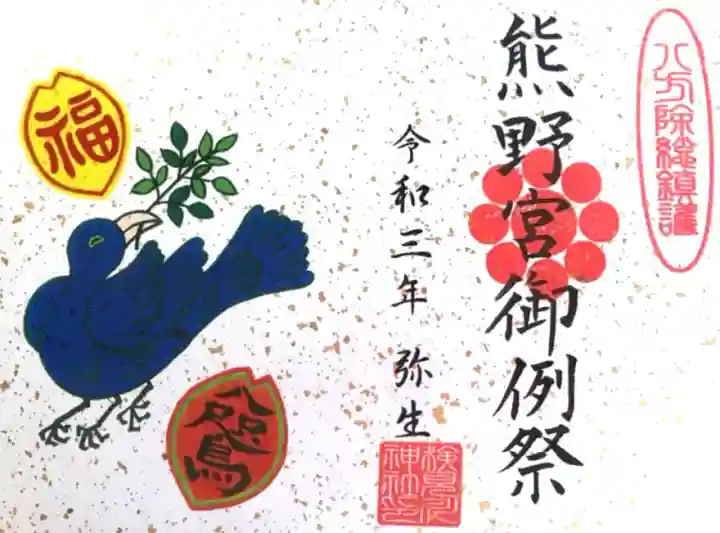 八方除総鎮護
熊野宮御例祭
令和三年 弥生
検見川
神社之印
福